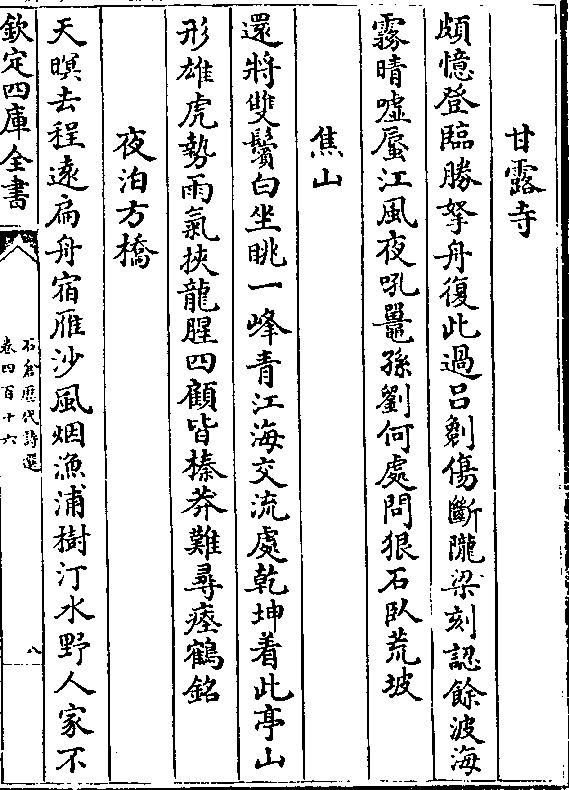 甘露寺
頗憶登臨勝拏舟復此過吕劖傷斷隴梁刻認餘波海
霧晴嘘蜃江風夜吼鼉孫劉何處問狠石臥荒坡
焦山
還將雙鬢白坐眺一峰青江海交流處乾坤着此亭山
形雄虎勢雨氣挾龍腥四顧皆榛莽難尋瘞鶴銘
夜泊方橋
天暝去程遠扁舟宿雁沙風烟漁浦樹汀水野人家不
欽定四庫全書
石倉歷代詩選
卷四百十六
八